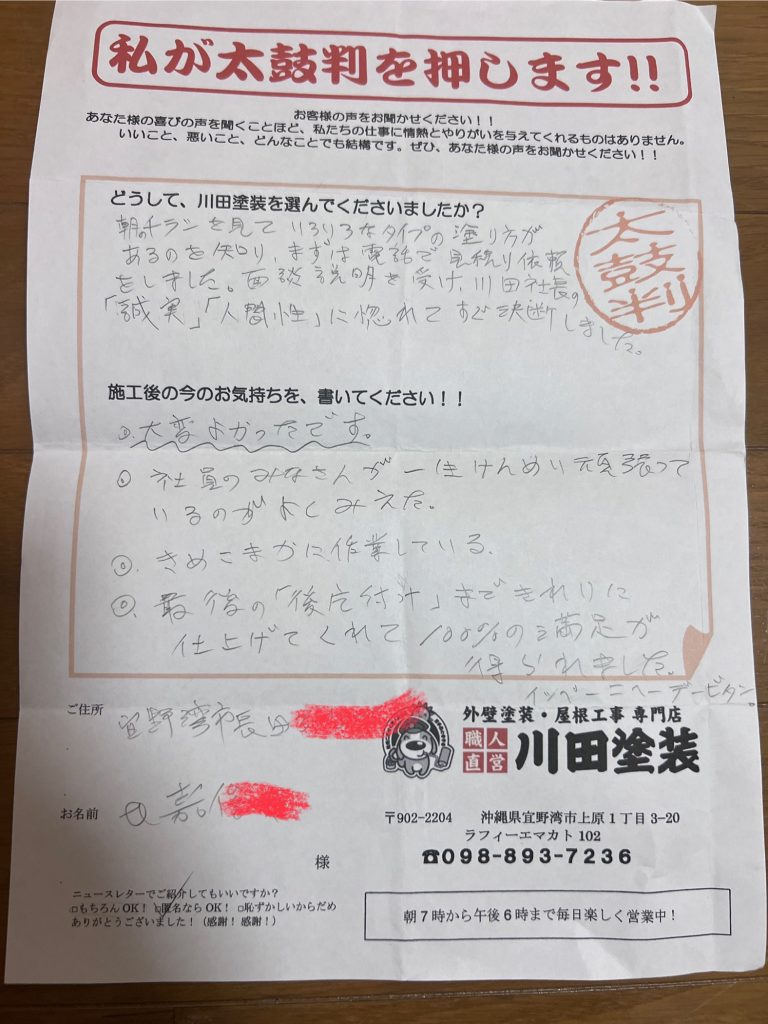 私が太鼓判を押します!!
お客様の声をお聞かせください！！
あなた様の喜びの声を聞くことほど、私たちの仕事に情熱とやりがいを与えてくれるものはありません。
いいこと、悪いこと、どんなことでも結構です。ぜひ、あなた様の声をお聞かせください！！
どうして、川田塗装を選んでくださいましたか？
太鼓判
朝のチラシを見ていろいろなタイプの塗り方が
あるのを知り、まずは電話で見積り依頼
をしました。面談説明を受け、川田社長の
「誠実」「人間性」に惚れてすぐ決断しました。
施工後の今のお気持ちを、書いてください！！
◎大変よかったです。
◎社員のみなさんが一生けんめい頑張って
いるのがよくみえた。
◎きめこまかに作業している。
◎最後の「後片付け」まできれいに
仕上げてくれて100%の満足が
得られました。
ご住所
宜野湾市長田
お名前
様
外壁塗装・屋根工事 専門店
職人直営 川田塗装
〒902-2204 沖縄県宜野湾市上原１丁目 3-20
ラフィーエマカト 102
☎098-893-7236
ニュースレターでご紹介してもいいですか？
□もちろん OK！ □匿名なら OK！ □恥ずかしいからだめ
ありがとうございました！（感謝！感謝！）
朝７時から午後６時まで毎日楽しく営業中！